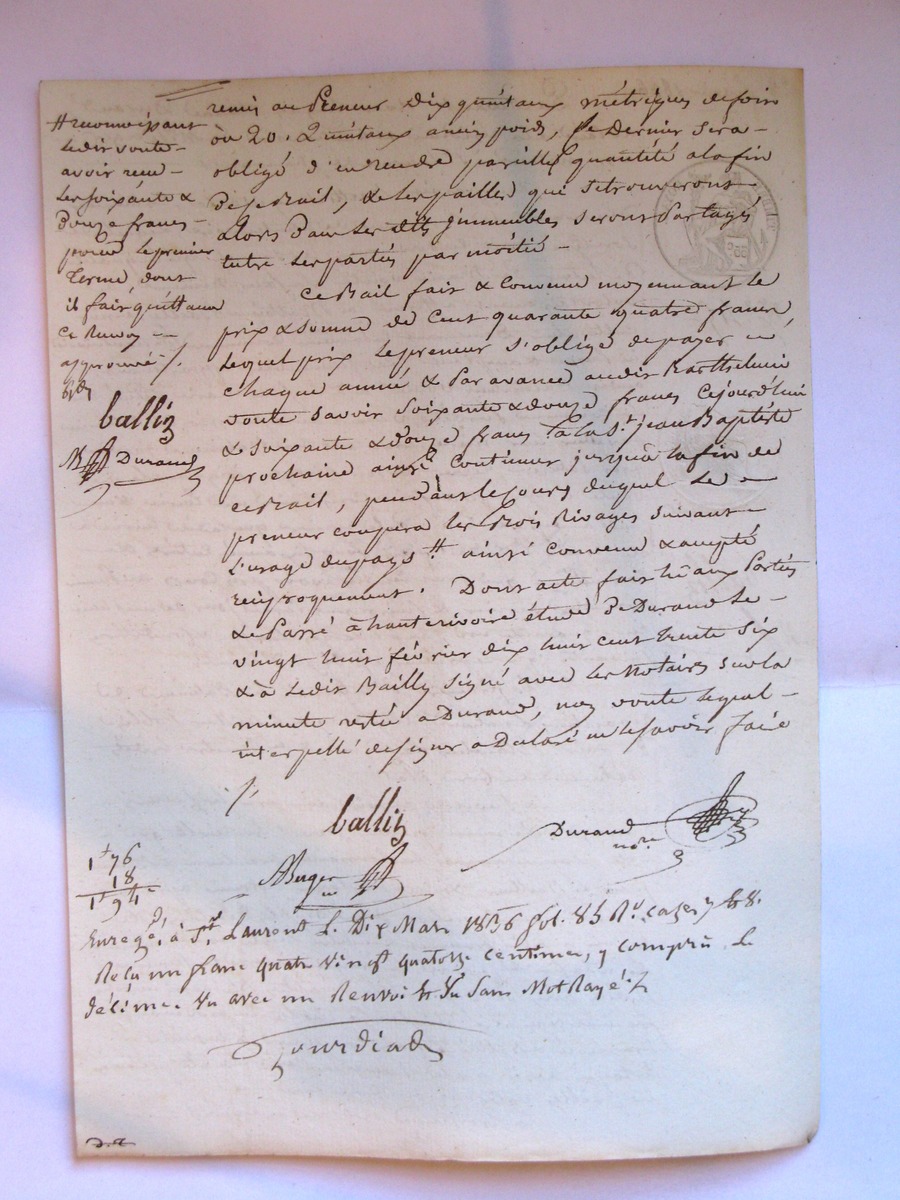 remis au Preneur dix quintaux métriques de foin
ou 20. Quintaux ancien poids, ce Dernier sera
obligé d'en rendre pareille quantité a la fin
de ce Bail, & les pailles qui se trouveront
alors dans les dits immeubles seront Partagés
entre les parties par moitié
ce Bail fait & convenu moyennant le
prix & somme de cent quarante quatre francs
lequel prix le preneur s'oblige de payer en
chaque année & Par avance audit Barthelemi
voute savoir soixante & douze francs cejourd'hui
& soixante & douze francs a la St. jean Baptiste
prochaine ainsi continuer jusqu'à la fin de
ce Bail, pendant le cours duquel le
preneur coupera les Bois Rivages suivant
l'usage du pays # ainsi convenu & accepté
réciproquement. Dont acte fait lu aux Parties
& Passé à hauterivoire étude de Durand le
vingt huit février dix huit cent trente six
& à ledit Bailly signé avec les Notaires sur la
minute restée a Durand, non voute lequel
interpellé de signer a Déclaré ne le savoir faire
# reconnoissant
ledit voute
avoir reçu
les soixante &
Douze francs
pour le premier
terme, dont
il fait quittance
ce Renvoi
approuvé /.
ballis
Durand
ballis
Durand
nore
1 76
18
1 94
Enregé. à St. Laurent le Dix Mars 1836 fol. 83 Ro. cases 7 & 8.
Reçu un franc quatre vingt quatorze centimes, y compris le
décime. Vu avec un Renvoi & Sans Mot Rayé.